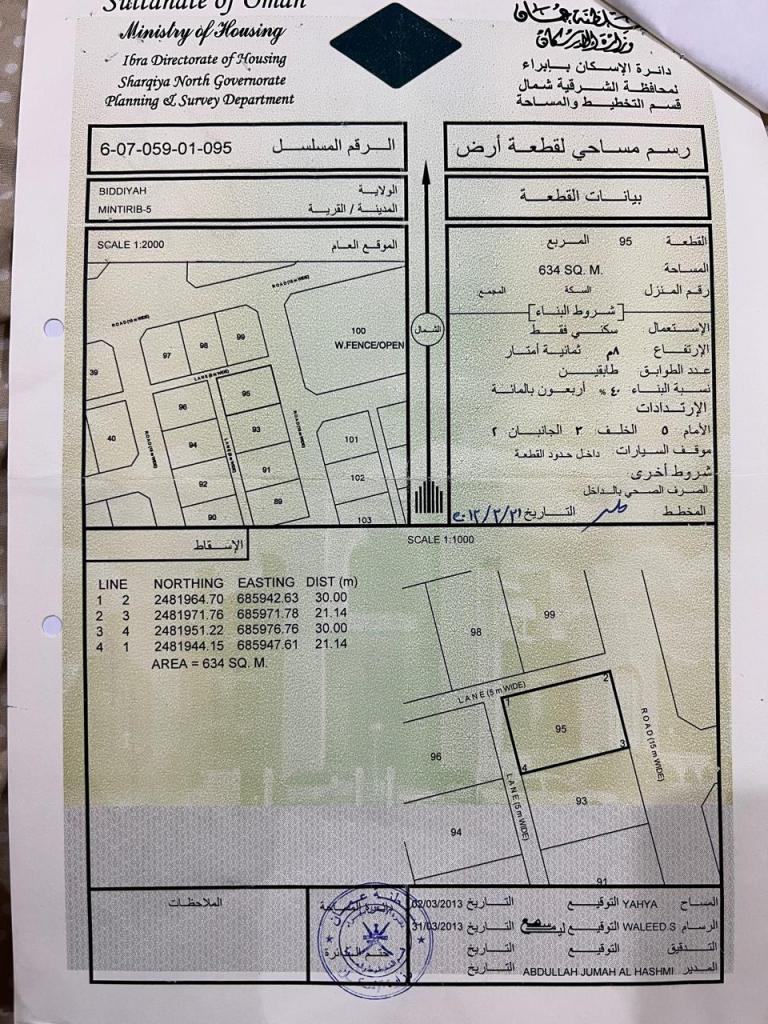 Sultanate of Oman
Ministry of Housing
Ibra Directorate of Housing
Sharqiya North Governorate
Planning & Survey Department
سلطنة عمان
وزارة الإسكان
دائرة الإسكان بإبراء
لمحافظة الشرقية شمال
قسم التخطيط والمساحة
6-07-059-01-095 الرقم المسلسل
رسم مساحي لقطعة أرض
BIDDIYAH الولاية
MINTIRIB-5 المدينة / القرية
بيانات القطعة
SCALE 1:2000 الموقع العام
ROAD (15 m WIDE)
ROAD (15 m WIDE)
100
W.FENCE/OPEN
99
98
97
39
LANE (5 m WIDE)
96
95
40
94
93
101
92
91
102
90
89
103
الشمال
القطعة 95 المربع
المساحة 634 SQ. M.
رقم المنزل السكة المجمع
شروط البناء
الإستعمال سكني فقط
الإرتفاع ٨م ثمانية أمتار
عدد الطوابق طابقين
نسبة البناء ٤٠ % أربعون بالمائة
الإرتدادات
الأمام ٥ الخلف ٣ الجانبان ٢
موقف السيارات داخل حدود القطعة
شروط أخرى
الصرف الصحي بالداخل
المخطط التاريخ
الإسقاط
SCALE 1:1000
LINE NORTHING EASTING DIST (m)
1 2 2481964.70 685942.63 30.00
2 3 2481971.76 685971.78 21.14
3 4 2481951.22 685976.76 30.00
4 1 2481944.15 685947.61 21.14
AREA = 634 SQ. M.
99
98
LANE (5 m WIDE)
1
2
95
3
4
96
ROAD (15 m WIDE)
LANE (5 m WIDE)
93
94
91
الملاحظات
سلطنة عمان
ختم الدائرة
المساح YAHYA التوقيع التاريخ 02/03/2013
الرسام WALEED.S التوقيع التاريخ 31/03/2013
التدقيق التوقيع التاريخ
المدير ABDULLAH JUMAH AL HASHMI التاريخ